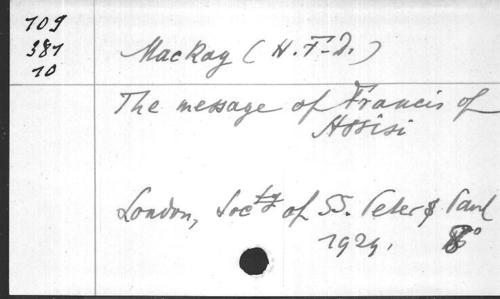 109
381
10
MacKay (H. F-D.)
The message of Francis of
Assisi
London, Soc^ty of SS. Peter & Paul
1924. 8°